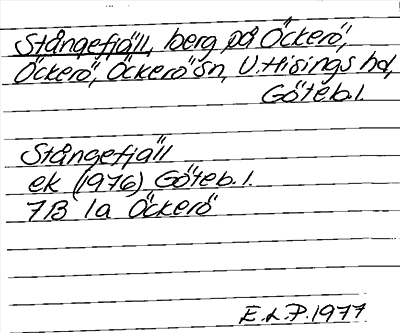 Stångefjäll, berg på Öckerö,
Öckerö, Öckerö sn, V. Hisings hd,
Göteb. l.
Stångefjäll
ek (1976) Göteb. l.
7B 1a Öckerö
E.L.P. 1977